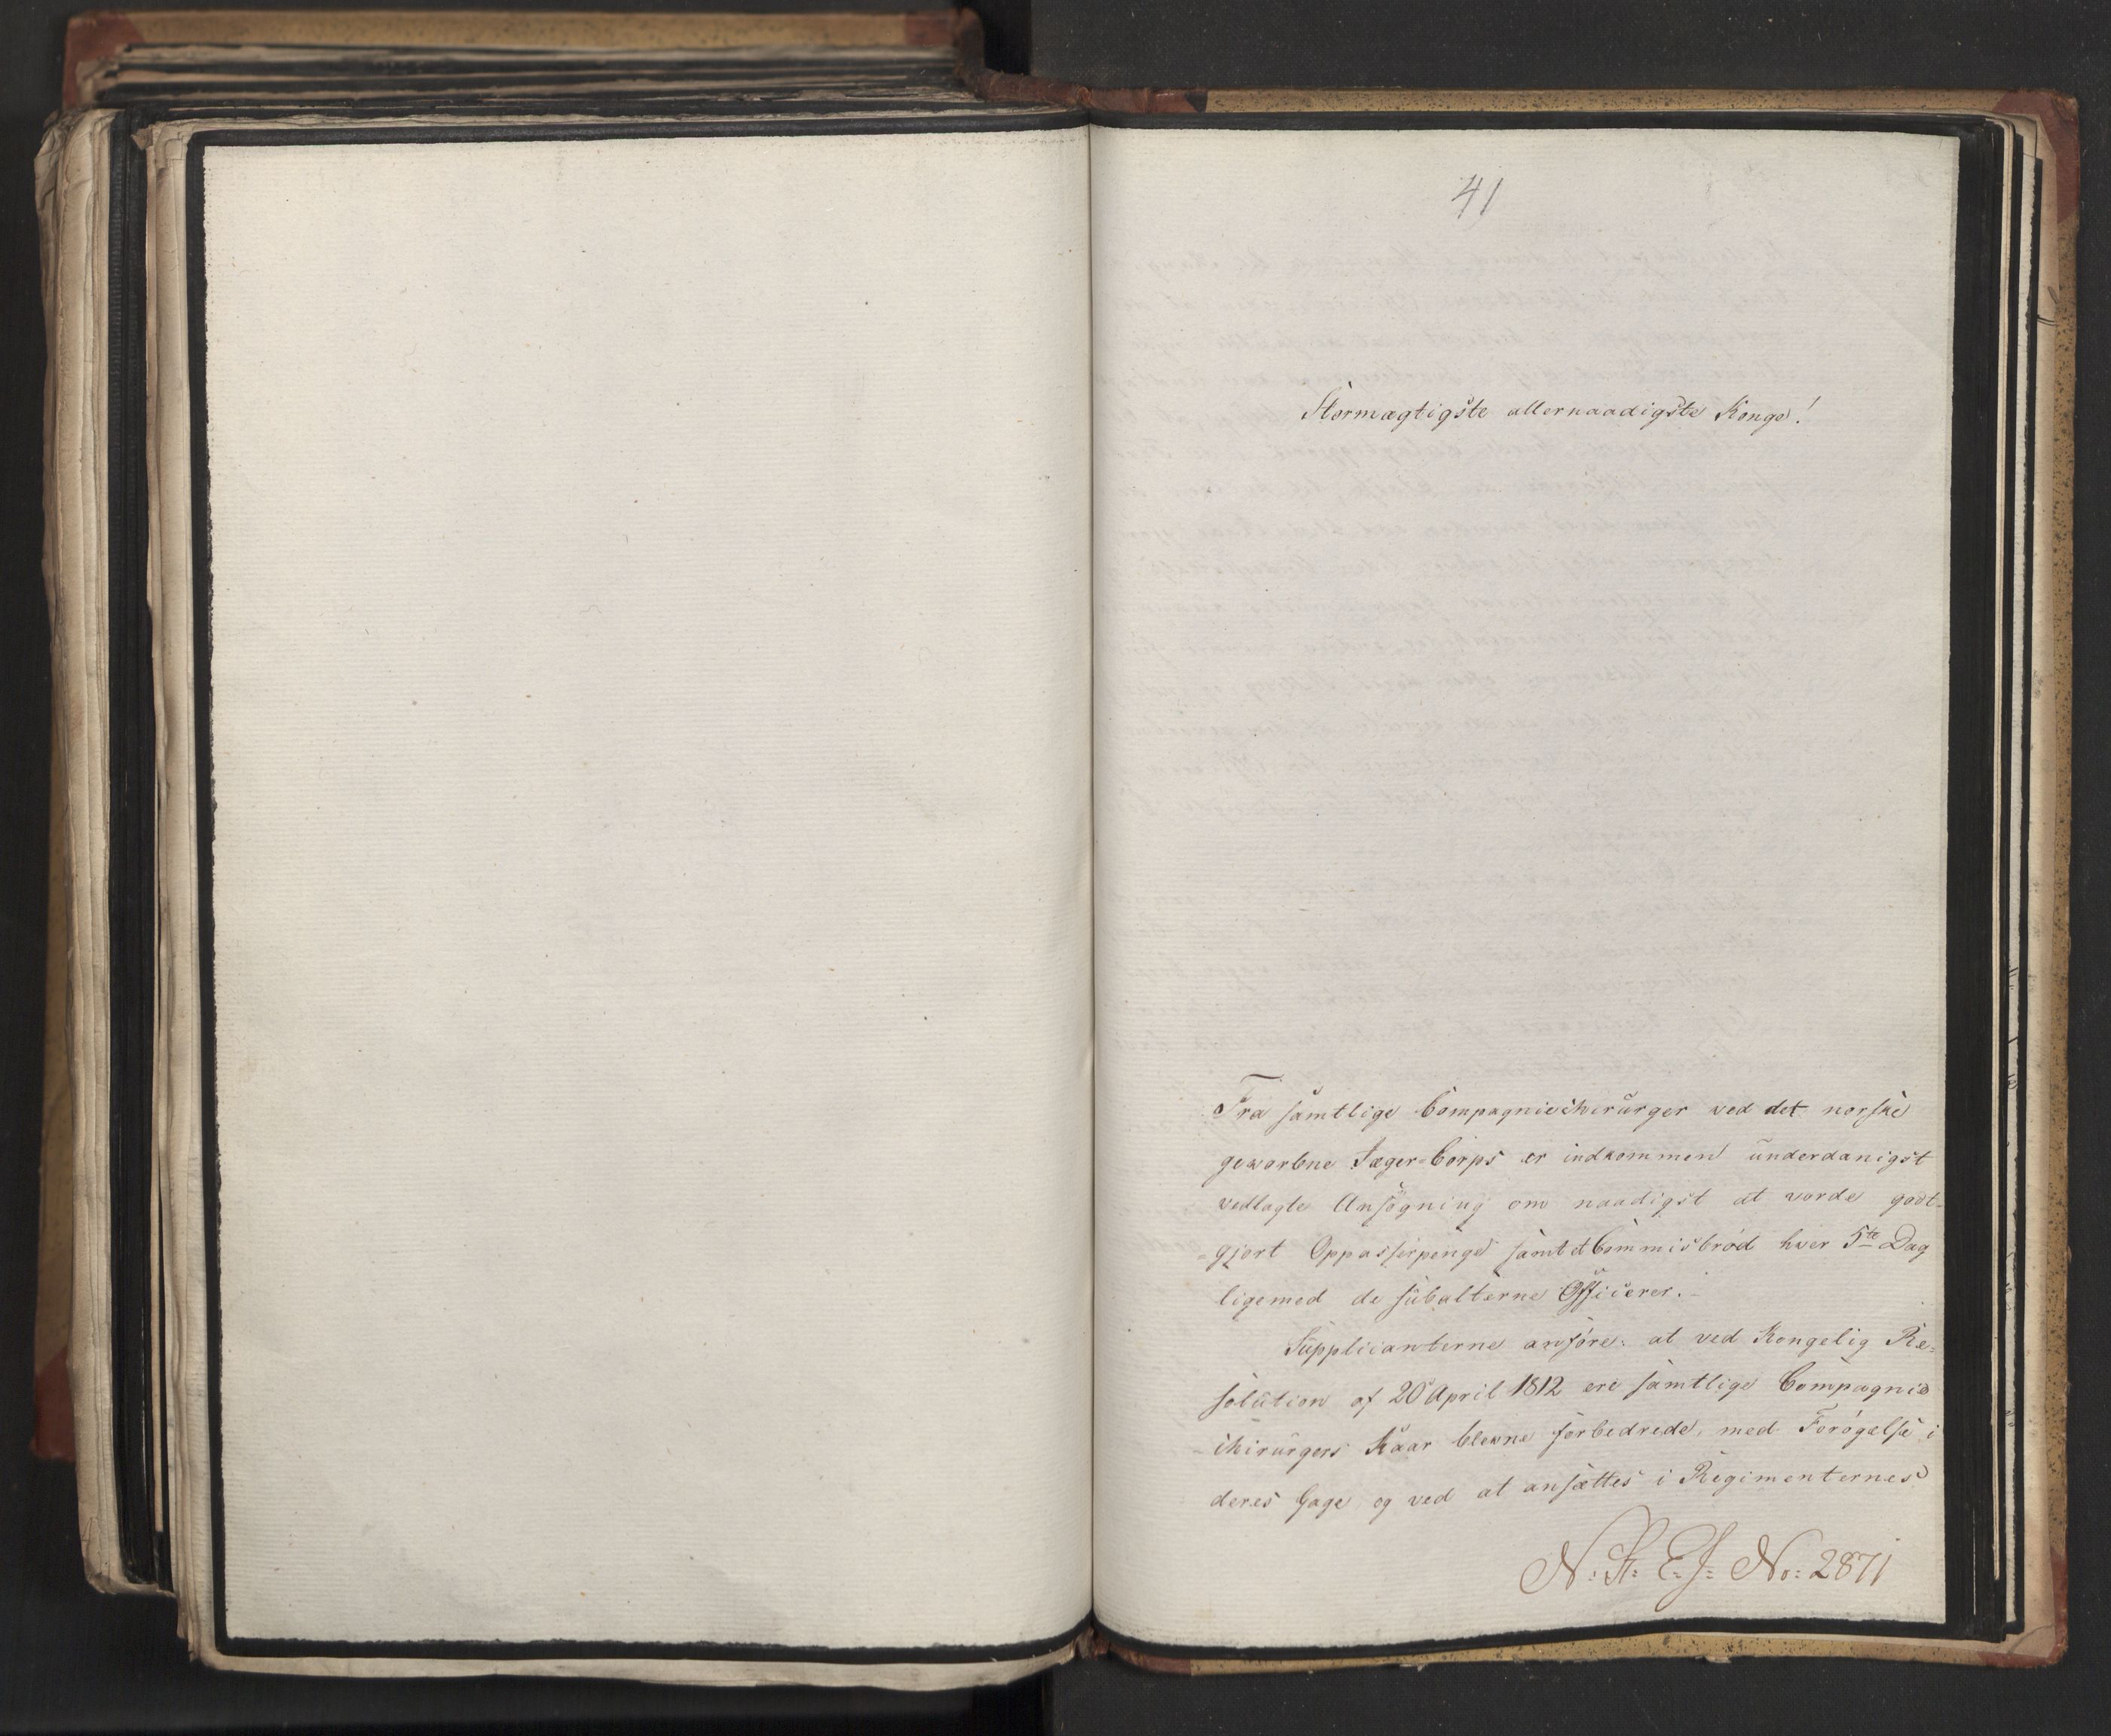 41
Stormægtigste allernaadigste Konge!
Fra samtlige Compagniechirurger ved det norske
gevorbne Jæger-Corps er indkommen underdanigst
vedlagte Ansøgning om naadigst at vorde godt-
-gjort Oppasserpenge samt et Commisbrød hver 5te Dag
ligemed de subalterne Officerer.-
Supplicanterne anføre: at ved Kongelig Re-
solution af 20 April 1812 ere samtlige Compagnie
-chirurgers Kaar blevne forbedrede, med Forøgelse i
deres Gage og ved at ansættes i Regimenternes
N: St: E: J: No: 2871